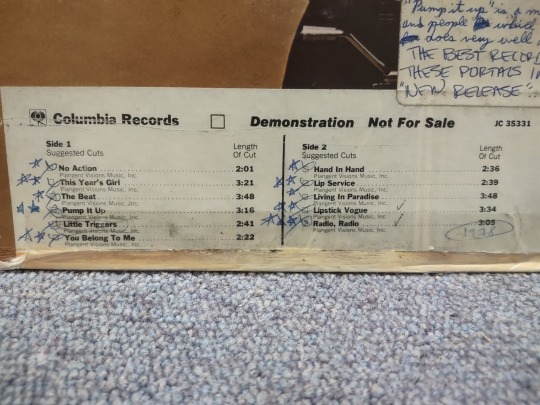 "Pump it up" is a m
and people which
dols very well
THE BEST RECOR
THESE PORTALS I
"NEW RELEASE"..
Columbia Records Demonstration Not For Sale JC 35331
Side 1 Length
Suggested Cuts Of Cut
No Action 2:01
Plangent Visions Music, Inc.
This Year's Girl 3:21
Plangent Visions Music, Inc.
The Beat 3:48
Plangent Visions Music, Inc.
Pump It Up 3:16
Plangent Visions Music, Inc.
Little Triggers 2:41
Plangent Visions Music, Inc.
You Belong To Me 2:22
Plangent Visions Music, Inc.
Side 2 Length
Suggested Cuts Of Cut
Hand In Hand 2:36
Plangent Visions Music, Inc.
Lip Service 2:39
Plangent Visions Music, Inc.
Living In Paradise 3:48
Plangent Visions Music, Inc.
Lipstick Vogue 3:34
Plangent Visions Music, Inc.
Radio, Radio 3:05
Plangent Visions Music, Inc.